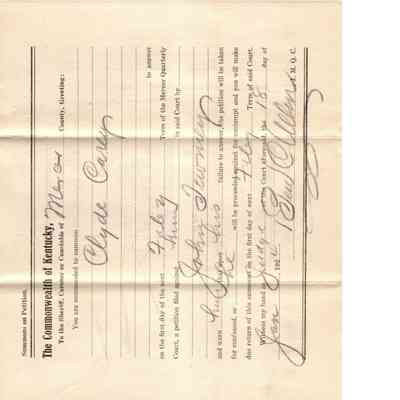 Summons on Petition.
The Commonwealth of Kentucky,
To the Sheriff, Coroner or Constable of Mercer County, Greeting:
You are commanded to summon
Clyde Carey
to answer
on the first day of the next Feby Term of the Mercer Quarterly
Court, a petition filed against him in said Court by
John
and warn him upon his failure to answer, the petition will be taken
for confessed, or he will be proceeded against for contempt and you will make
due return of this summons on the first day of next Feby Term of said Court.
Witness my hand as Judge of the Court aforesaid, the 15 day of
Jan 192
J. M. Q. C.